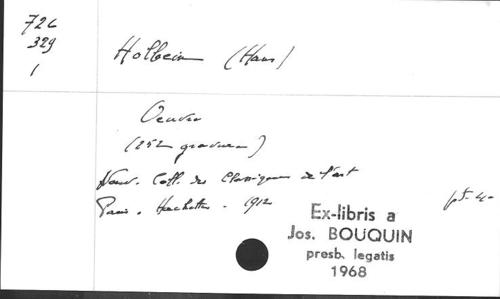 726
329
1
Holbein (Hans)
Oeuvre
(252 gravures)
Nouv. Coll. des Classiques de l'art
Paris. Hachette. 1912
Ex-libris a
Jos. BOUQUIN
presb. legatis
1968